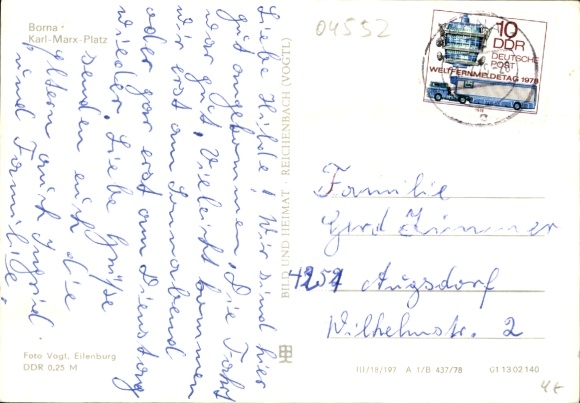 Borna ·
Karl-Marx-Platz
Liebe Hilde! Wir sind hier
gut angekommen. Die Fahrt
war gut. Vieleicht kommen
wir erst am Sonnabend
oder gar erst am Dienstag
wieder. Liebe Grüße
senden euch die
Eltern auch Ingrid
und Familie.
Foto Vogt, Eilenburg
DDR 0,25 M
BILD UND HEIMAT · REICHENBACH (VOGTL)
04552
10
DDR
DEUTSCHE
POST
WELTFERNMELDETAG 1978
Familie
Gerd Zimmer
4251 Augsdorf
Wilhelmstr. 2
III/18/197 A 1/B 437/78 G1 13 02 140